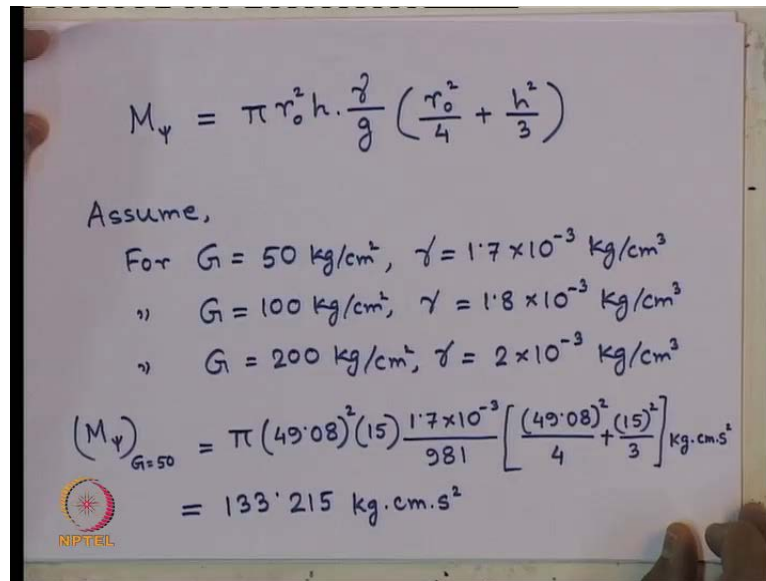 M_ψ = π r₀² h · γ/g (r₀²/4 + h²/3)
Assume,
For G = 50 kg/cm², γ = 1·7 × 10⁻³ kg/cm³
" G = 100 kg/cm², γ = 1·8 × 10⁻³ kg/cm³
" G = 200 kg/cm², γ = 2 × 10⁻³ kg/cm³
(M_ψ)_G=50 = π (49·08)² (15) 1·7×10⁻³/981 [(49·08)²/4 + (15)²/3] kg·cm·s²
= 133·215 kg·cm·s²
NPTEL